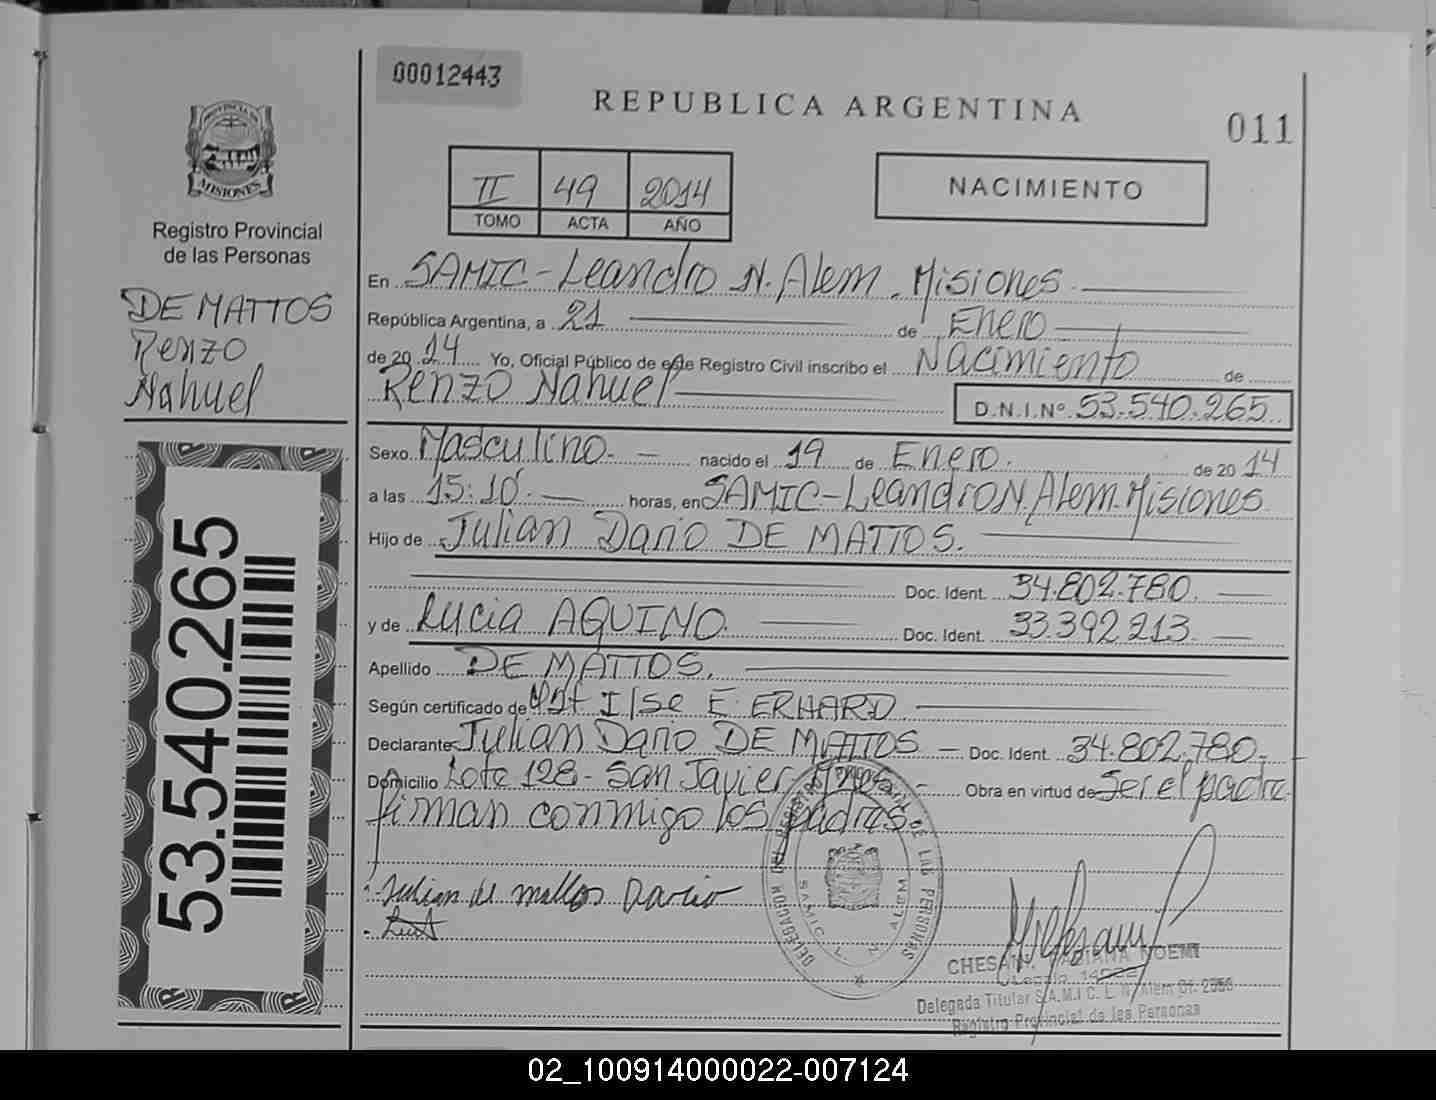 00012443
REPUBLICA ARGENTINA
011
PROVINCIA DE
MISIONES
Registro Provincial
de las Personas
DE MATTOS
Renzo
Nahuel
53.540.265
II 49 2014
TOMO ACTA AÑO
NACIMIENTO
En SAMIC - Leandro N. Alem. Misiones
República Argentina, a 21 de Enero
de 20 14 Yo, Oficial Público de este Registro Civil inscribo el Nacimiento de
Renzo Nahuel D.N.I.Nº 53.540.265
Sexo Masculino. nacido el 19 de Enero. de 20 14
a las 15:10 horas, en SAMIC-Leandro N. Alem. Misiones
Hijo de Julian Dario DE MATTOS.
Doc. Ident. 34.802.780.
y de Lucia AQUINO Doc. Ident. 33.392.213.
Apellido DE MATTOS.
Según certificado de Ilse E. ERHARD.
Declarante Julian Dario DE MATTOS - Doc. Ident. 34.802.780.
Domicilio Lote 128 - San Javier - Obra en virtud de Ser el padre
firman conmigo los padres.
Julian de mattos Dario
DELEGACION DEL REGISTRO DE LAS PERSONAS
SAMIC L. N. ALEM
CHESANI, FABIANA NOEMI
Delegada Titular S.A.M.I.C. L. N. Alem Of. 2358
Registro Provincial de las Personas
02_100914000022-007124